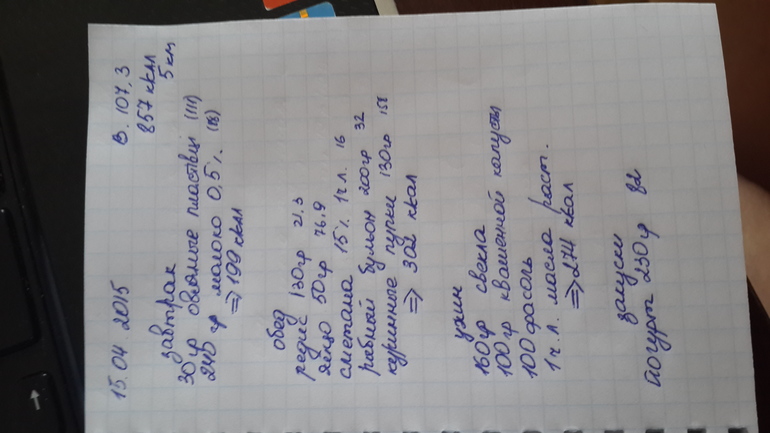 15.04.2015
В. 107,3
857 ккал
5 км
завтрак
30 гр овсяные пластівці (111)
240 гр молоко 0,5% (88)
⇒ 199 ккал
обед
редис 130гр 21.3
яйцо 50гр 76.9
сметана 15% 1ч.л. 16
рыбный бульон 200гр 32
куринные пупки 130гр 158
⇒ 302 ккал
ужин
160гр свекла
100гр квашенной капусты
100 фасоль
1 ч.л. масла раст.
⇒ 274 ккал
закуски
йогурт 230гр 82